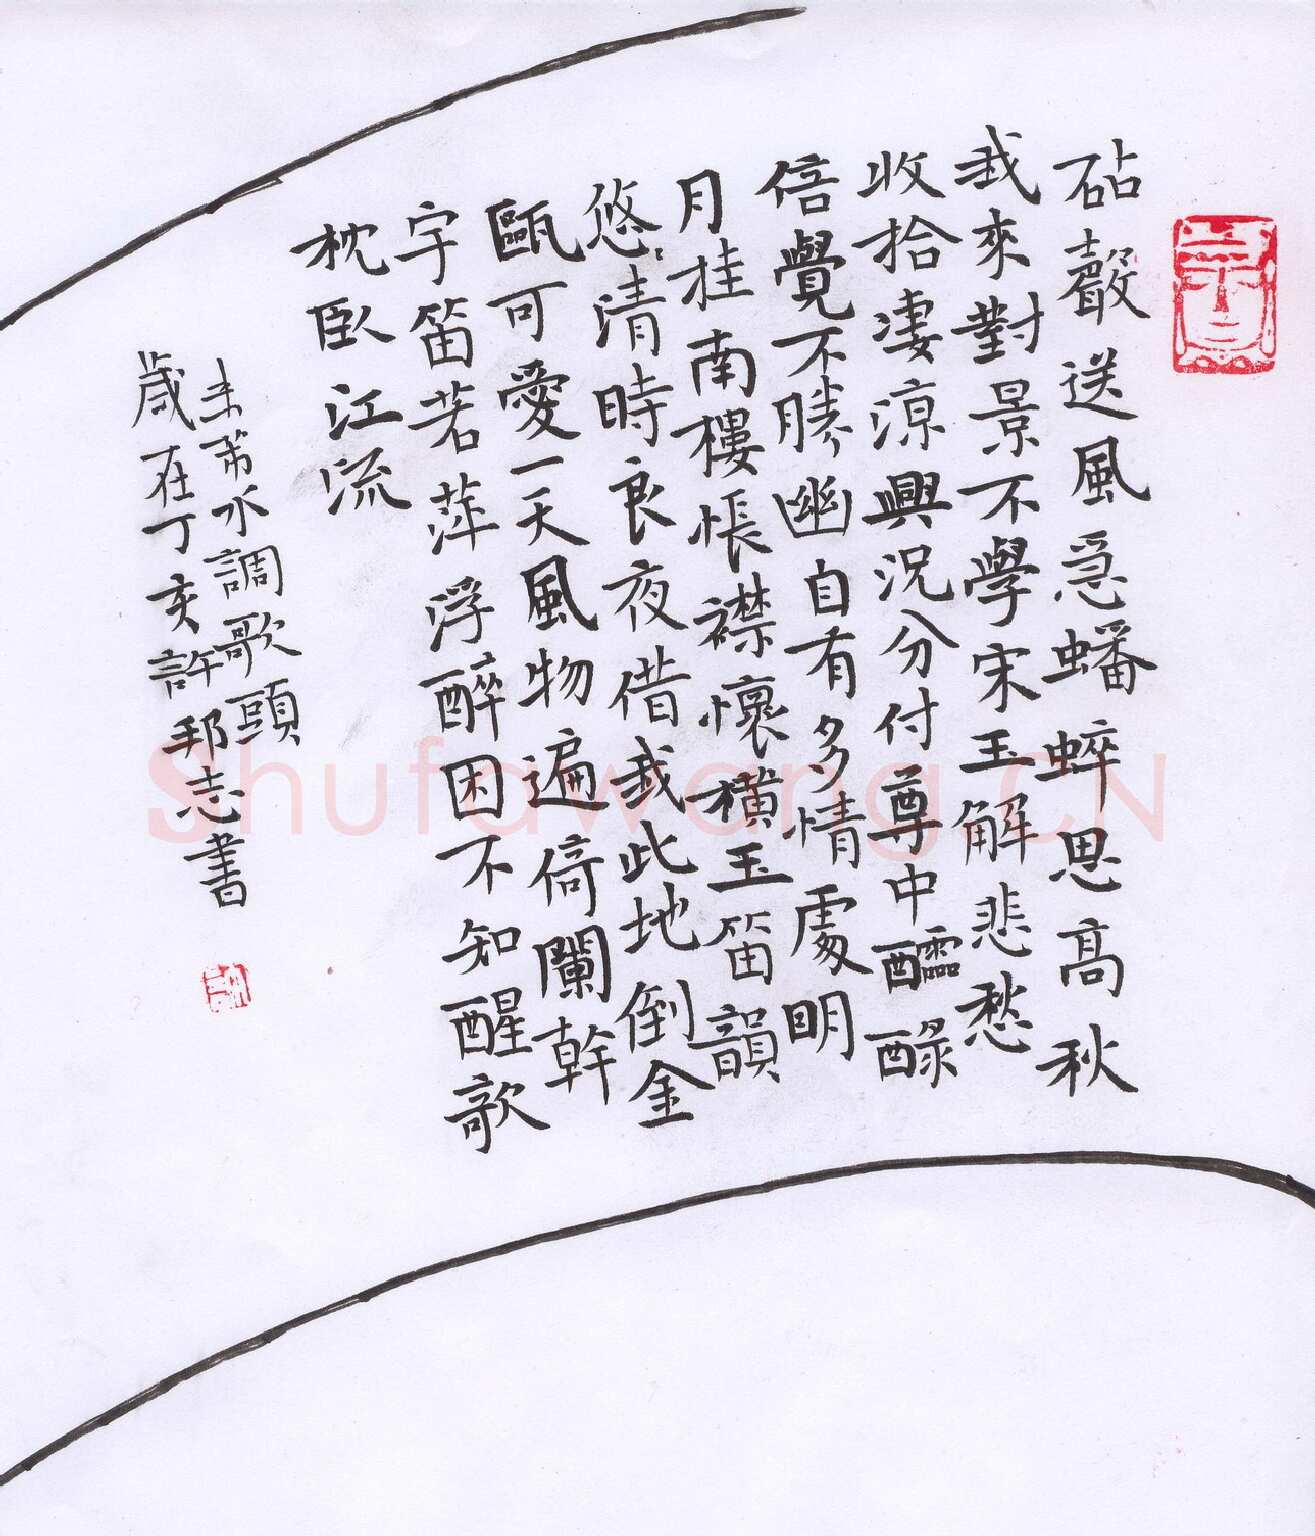 砧聲送風急蟠蟀思高秋
我來對景不學宋玉解悲愁
收拾凄涼興況分付尊中醽醁
倍覺不勝幽自有多情處明
月桂南樓悵襟懷橫玉笛韻
悠〻清時良夜借我此地倒金
甌可愛一天風物遍倚闌幹
宇笛若萍浮醉困不知醒欹
枕臥江流
米芾水調歌頭
歲在丁亥許邦志書
Shufawang.CN